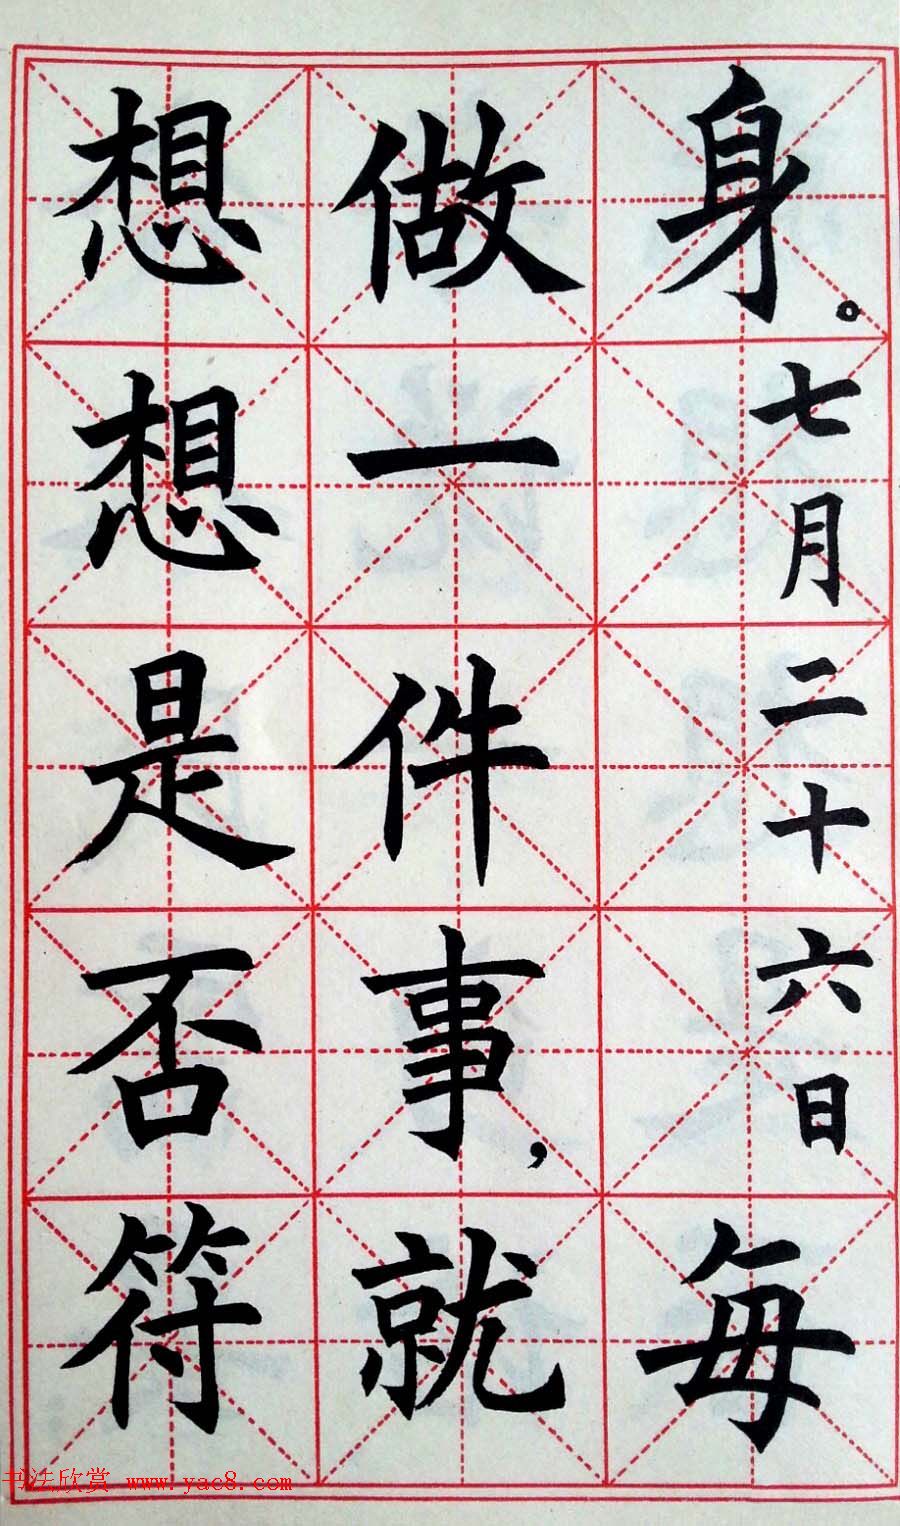 身。七月二十六日每
做一件事，就
想想是否符
书法欣赏 www.yac8.com